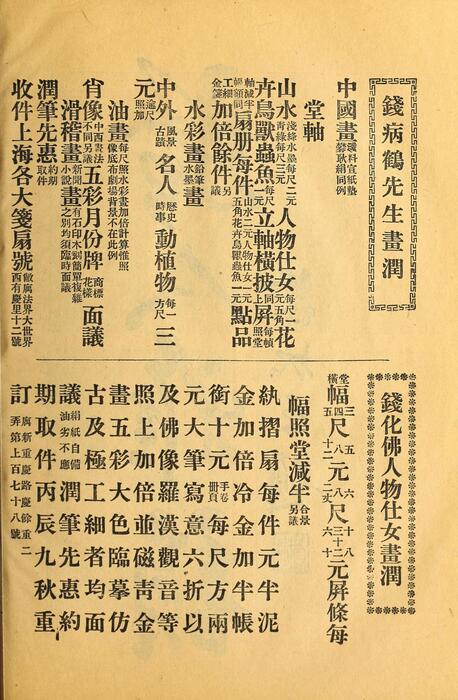 錢病鶴先生畫潤
中國畫 料宣紙墊礬耿絹同例
堂軸
山水 淺絳水墨每尺二元青綠每尺三元 人物仕女 每尺一元五角 花
卉鳥獸蟲魚 每尺一元 立軸橫披 同上 屏 每幀照堂
軸減半橫額同 扇册每件 山水二元人物仕女一元五角花卉鳥獸蟲魚一元 點品
工細金箋 加倍餘件 另議
水彩畫 鉛筆畫水墨畫
中外 風景古蹟 名人 歷史時事 動植物 每一方尺 三
元 逾尺照加
油畫 每尺照水彩畫加倍計算惟照像底布劇場背景不在此例
肖像 中西畫法不同另議 五彩月份牌 商標花樣 面議
滑稽畫 新聞小說 畫 有石印木刻簡單複雜之別均須臨時面議
潤筆先惠 約期取件
收件上海各大箋扇號 敝廬法界大世界西有慶里十二號
錢化佛人物仕女畫潤
堂橫 幅 三四五 尺 五八十二 元 六八二丈 尺 十八三十二六十 元屏條每
幅照堂減半 合景另議
紈摺扇每件元半泥
金加倍冷金加半帳
銜十元 手卷册頁 每尺方兩
元大筆寫意六折以
及佛像羅漢觀音等
照上加倍並磁靑金
畫五彩大色臨摹仿
古及極工細者均面
議 絹紙自備油劣不應 潤筆先惠約
期取件丙辰九秋重
訂 新重慶路慶餘弄第百七十八號